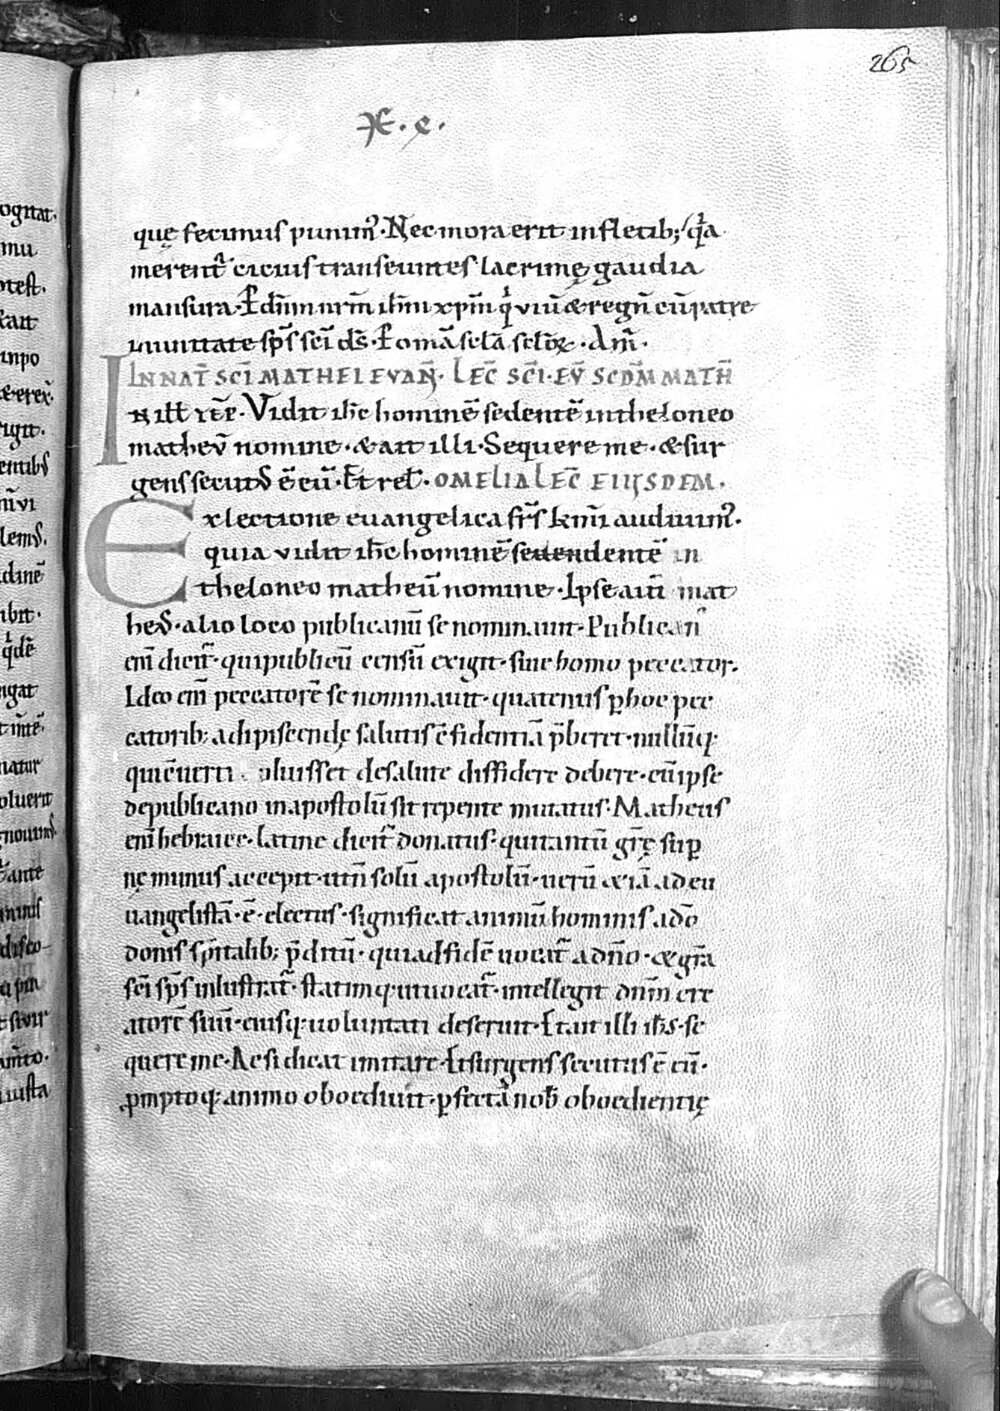 265
quę fecimus punim᷒. Nec mora erit in fletib; q̇a
merent᷑ ciuius transeuntes lacrimę gaudia
mansura. P dn̄m nr̄m ih̄m xp̄m q̇ viuit & regn̄ cū patre
in unitate sp̄s sc̄i ds̄. P om̄a sc̄la sc̄loꝝ. Am̄.
IN NAT̄ SC̄I MATHEI EVAN̄. LEC̄ SC̄I. EV̄ SCDM̄ MATH̄
IN ill̄ tēr. Vidit ih̄c hominē sedentē in theloneo
matheū nomine. & ait illi. Sequere me. & sur
gens secutus ē eū. Et rel̄. OMELIA LEC̄ EIUSDEM.
Ex lectione euangelica fr̄s km̄i audiuim᷒.
quia vidit ih̄c hominē sedendentē in
theloneo matheū nomine. Ipse aut̄ mat
heus. alio loco publicanū se nominauit. Publican᷒
eni᷒ dicit᷑. qui publicū censū exigit. siue homo peccator.
Ideo eni᷒ peccatorē se nominauit. quatenus ꝑ hoc pec
catorib; adipiscendę salutis c̄fidentiā p̄beret. nullūq;
qui c̄uerti uoluisset de salute diffidere debere. cū ipse
de publicano in apostolū sit repente mutatus. Matheus
eni᷒ hebraice. latine dicit᷑ donatus. qui tantū gr̄ę suꝑ
nę munus accepit. ut n̄ solū apostolū. uerū & iā ad eu
uangelistā. ē. electus. significat animū hominis a dō
donis sp̄italib; p̄ditū. qui ad fidē uocat᷑ a dn̄o. & gr̄a
sc̄i sp̄s inlustrat᷑. statimq; ut uocat᷑. intellegit dn̄m cre
atorē suū. eiusq; uoluntati deseruit. Et ait illi ih̄s. se
quere me. Ac si dicat imitare. Et surgens secutus ē eū.
promptoq; animo oboediuit. ꝑfectā nob̄ oboedientię